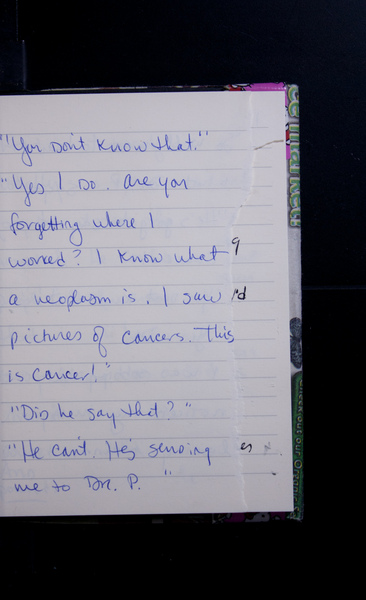 "You Don't Know that."
"Yes I Do. Are you
forgetting where I
worked? I Know what
a neoplasm is. I saw
pictures of cancers. This
is cancer!"
"Did he say that?"
"He can't. He's sending
me to Dr. P."
9
rd
es
Check out our Organic